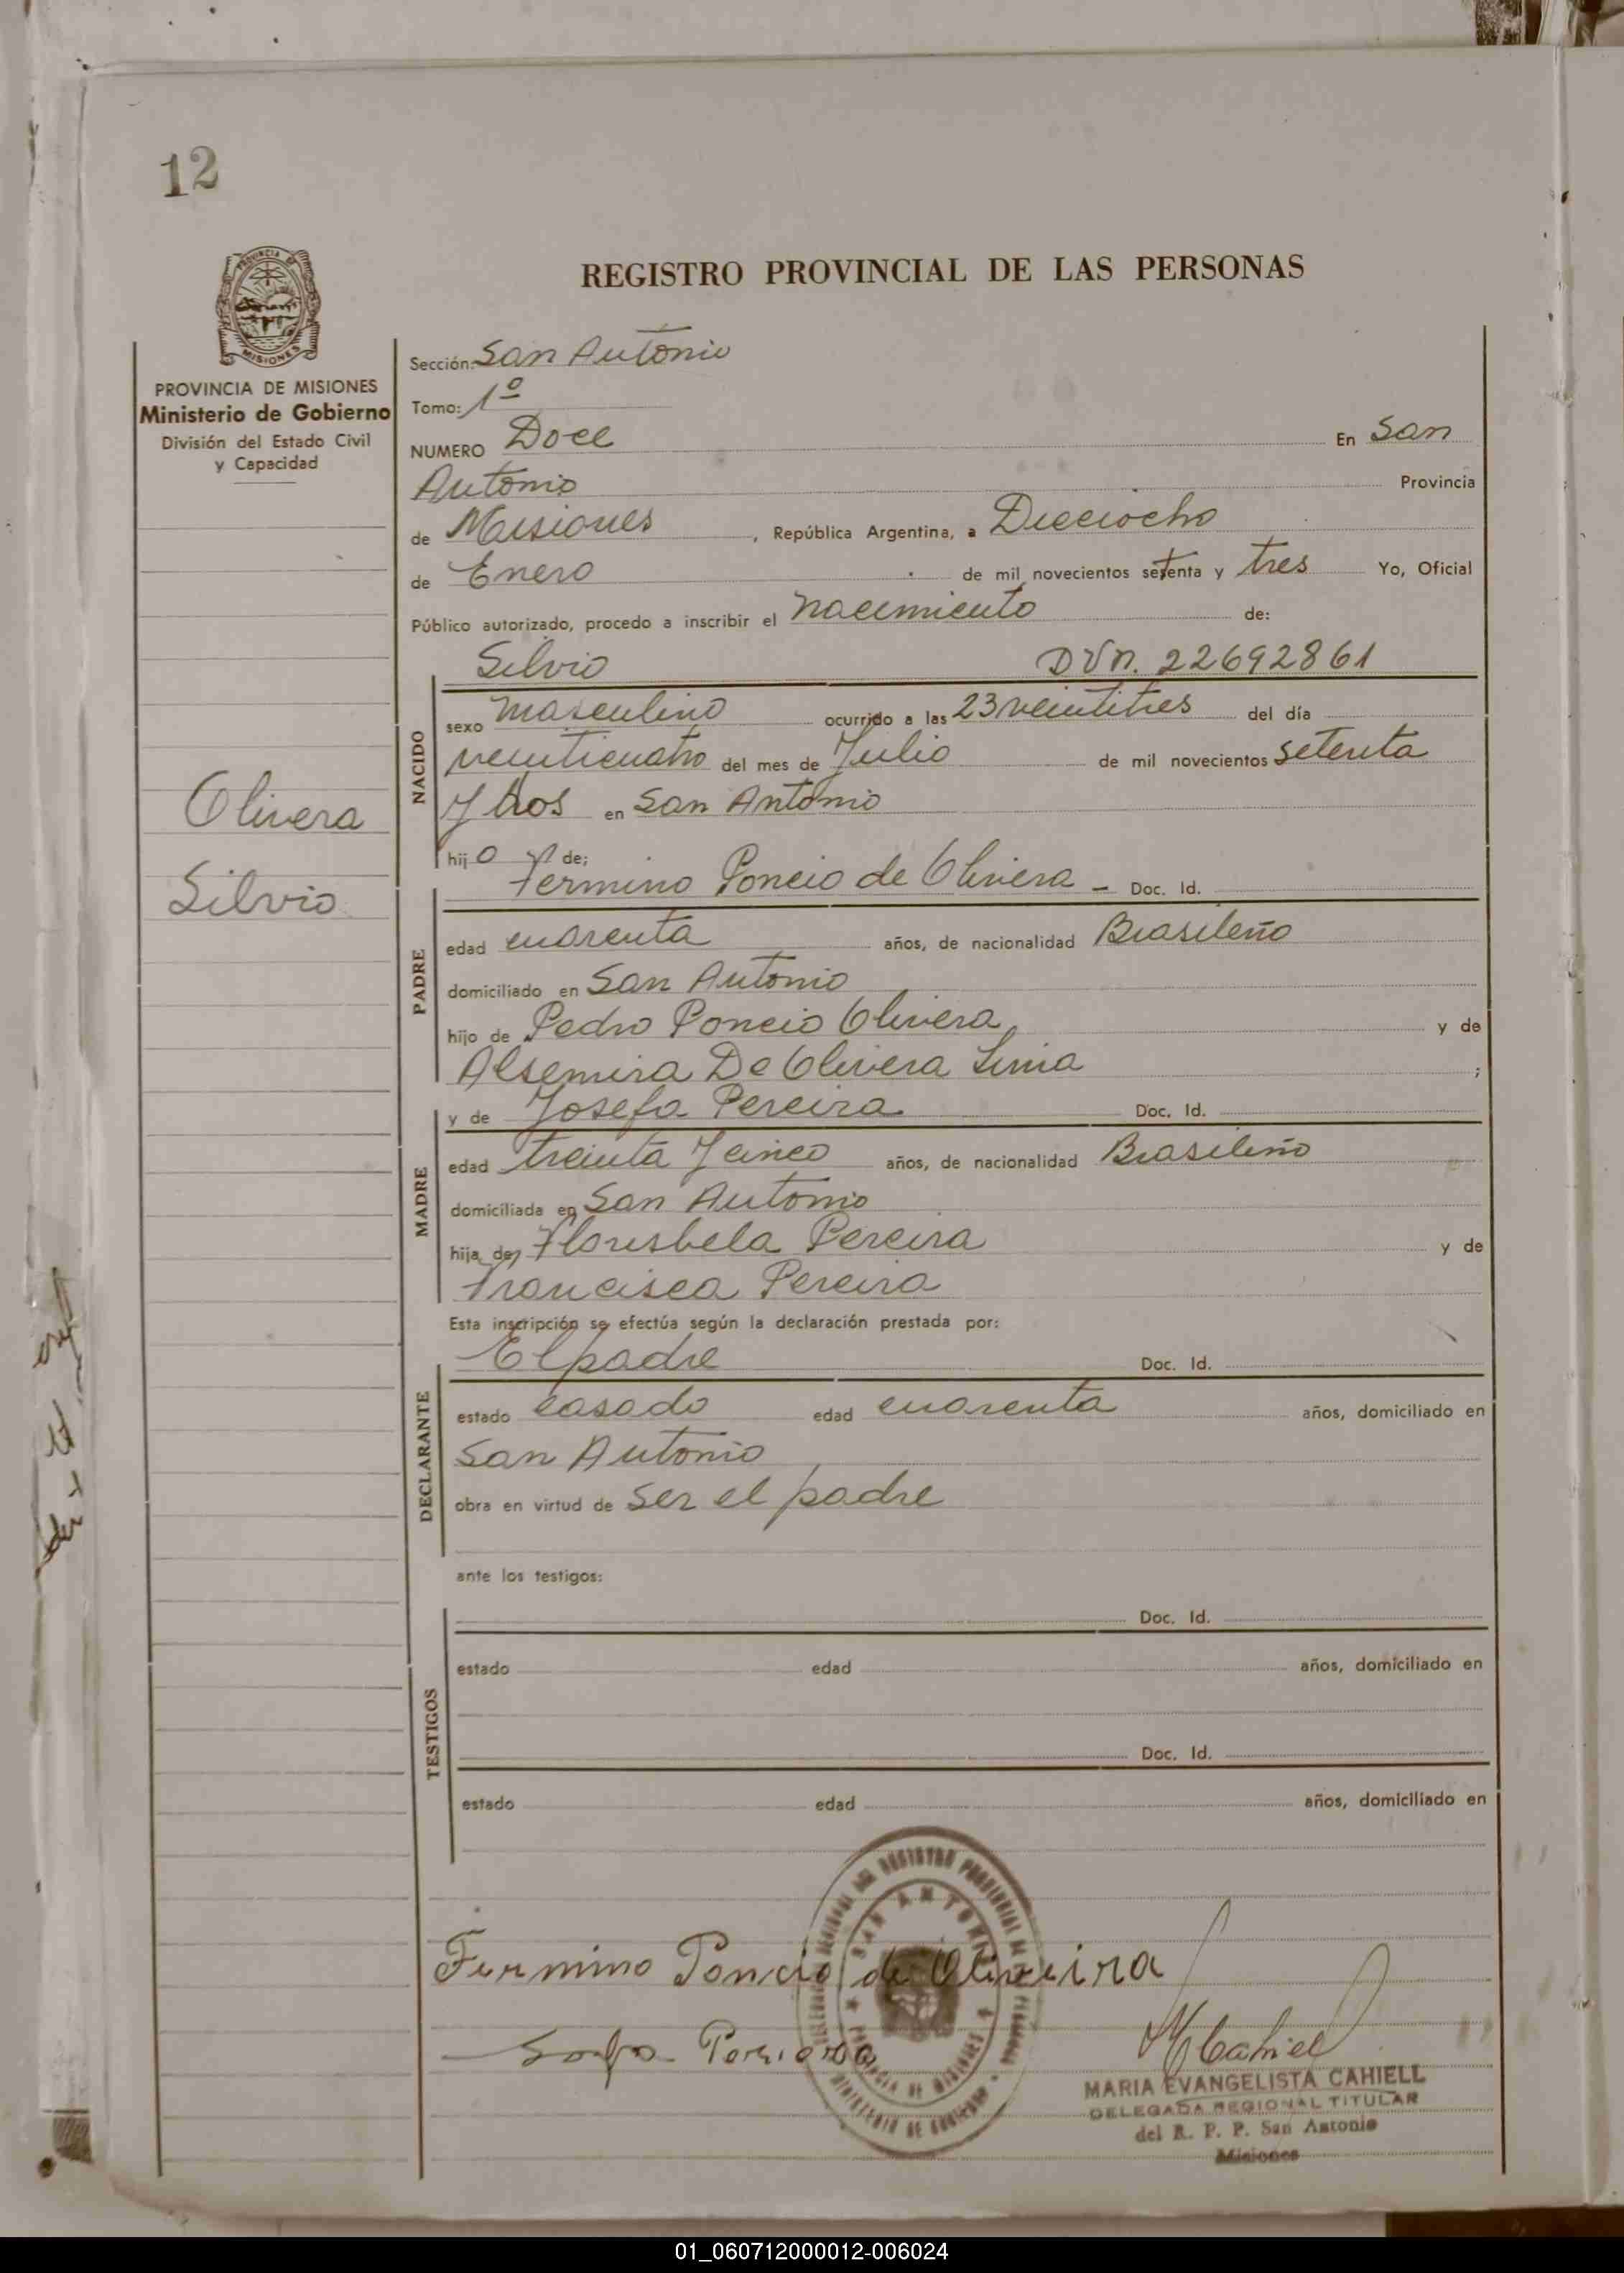 12
REGISTRO PROVINCIAL DE LAS PERSONAS
PROVINCIA DE MISIONES
Ministerio de Gobierno
División del Estado Civil
y Capacidad
Sección: San Antonio
Tomo: 1º
NUMERO Doce En San
Antonio Provincia
de Misiones, República Argentina, a Dieciocho
de Enero de mil novecientos setenta y tres Yo, Oficial
Público autorizado, procedo a inscribir el nacimiento de:
Silvio DVN. 22692861
NACIDO
sexo masculino ocurrido a las 23 veintitres del día
veinticuatro del mes de Julio de mil novecientos setenta
y dos en San Antonio
hijo de;
Olivera
Silvio
Fermino Poncio de Olivera - Doc. Id.
PADRE
edad cuarenta años, de nacionalidad Brasileño
domiciliado en San Antonio
hijo de Pedro Poncio Olivera y de
Alsemira De Olivera Lima ;
y de Josefa Pereira Doc. Id.
MADRE
edad treinta y cinco años, de nacionalidad Brasileño
domiciliada en San Antonio
hija de, Florisbela Pereira y de
Francisca Pereira
Esta inscripción se efectúa según la declaración prestada por:
El padre Doc. Id.
DECLARANTE
estado casado edad cuarenta años, domiciliado en
San Antonio
obra en virtud de ser el padre
ante los testigos:
Doc. Id.
TESTIGOS
estado edad años, domiciliado en
Doc. Id.
estado edad años, domiciliado en
Fermino Poncio de Oliveira
MCahiell
MARIA EVANGELISTA CAHIELL
DELEGADA REGIONAL TITULAR
del R. P. P. San Antonio
Misiones
SAN ANTONIO
PROVINCIA DE MISIONES
01_060712000012-006024